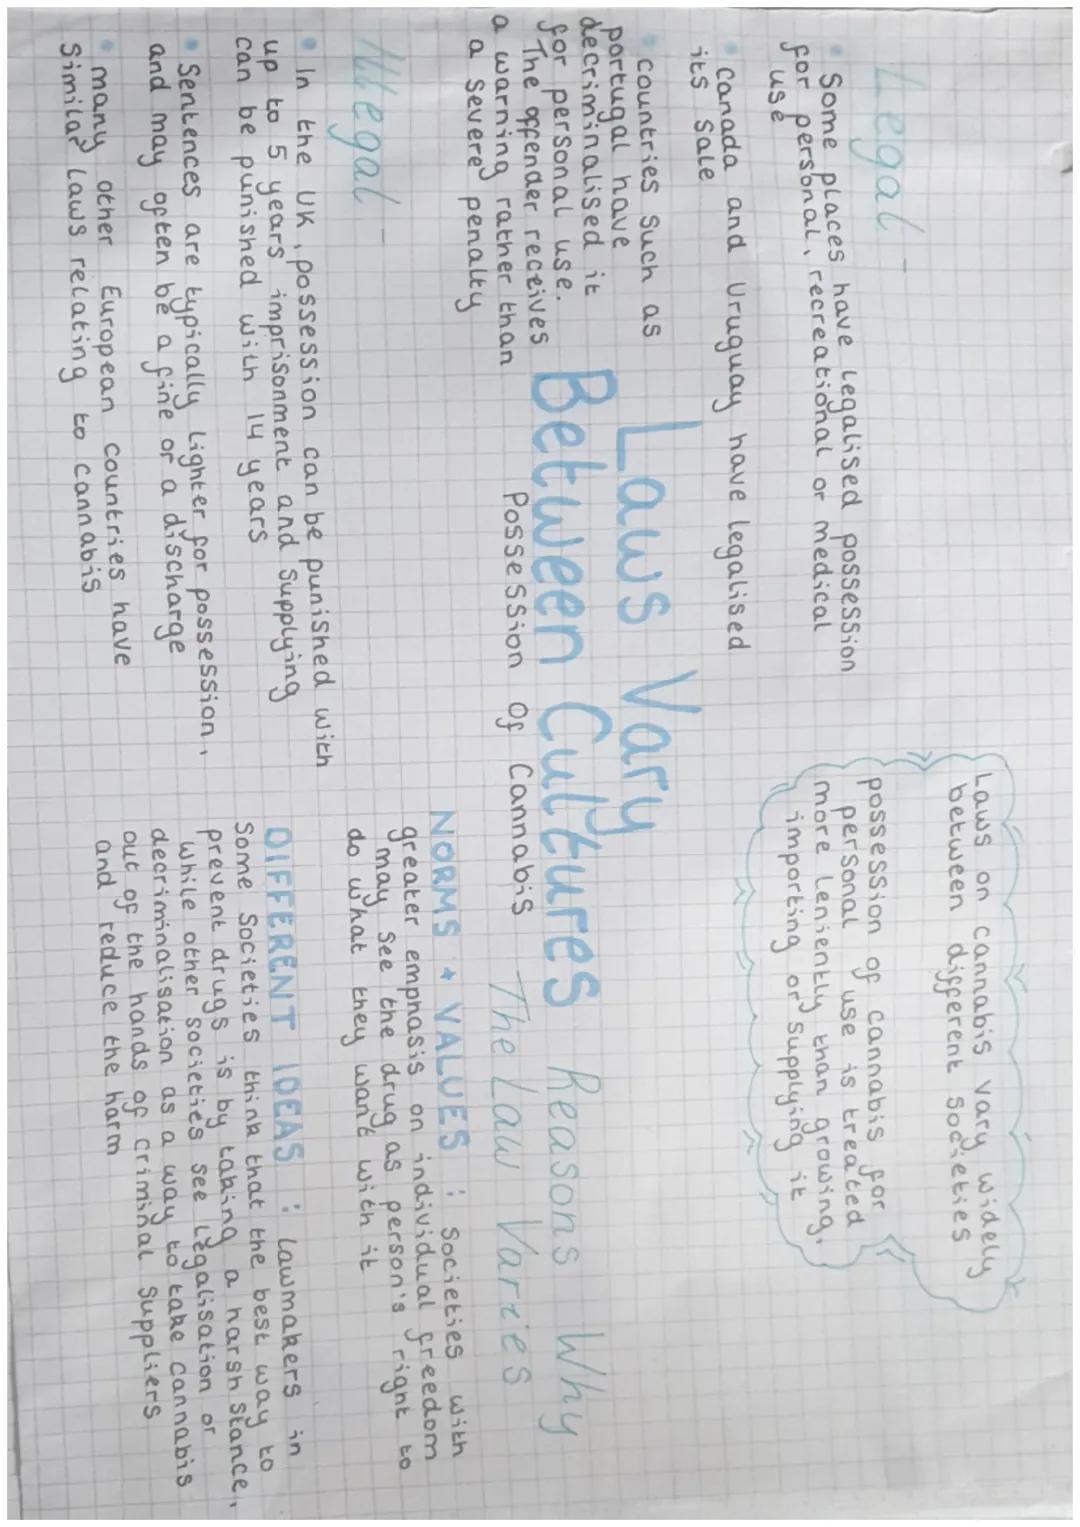 Legal -
• Some places have legalised possession
for personal, recreational or medical
use
• Canada and Uruguay have legalised
its sale
• countries such as
portugal have
decriminalised it
for personal use.
The offender receives
a warning rather than
a severe penalty
Laws on cannabis vary widely
between different societies
possession of cannabis for
personal use is treated
more leniently than growing,
importing or supplying it
Laws Vary
Between Cultures
Possession of Cannabis
Illegal -
• In the UK, possession can be punished with
up to 5 years imprisonment and supplying
can be punished with 14 years
• Sentences are typically lighter for possession,
and may often be a fine or a discharge
• many other European countries have
similar laws relating to cannabis
Reasons Why
The Law Varies
NORMS + VALUES : Societies with
greater emphasis on individual freedom
may see the drug as person's right to
do what they want with it
DIFFERENT IDEAS : lawmakers in
some societies think that the best way to
prevent drugs is by taking a harsh stance,
while other societies see legalisation or
decriminalisation as a way to take cannabis
out of the hands of criminal suppliers
and reduce the harm